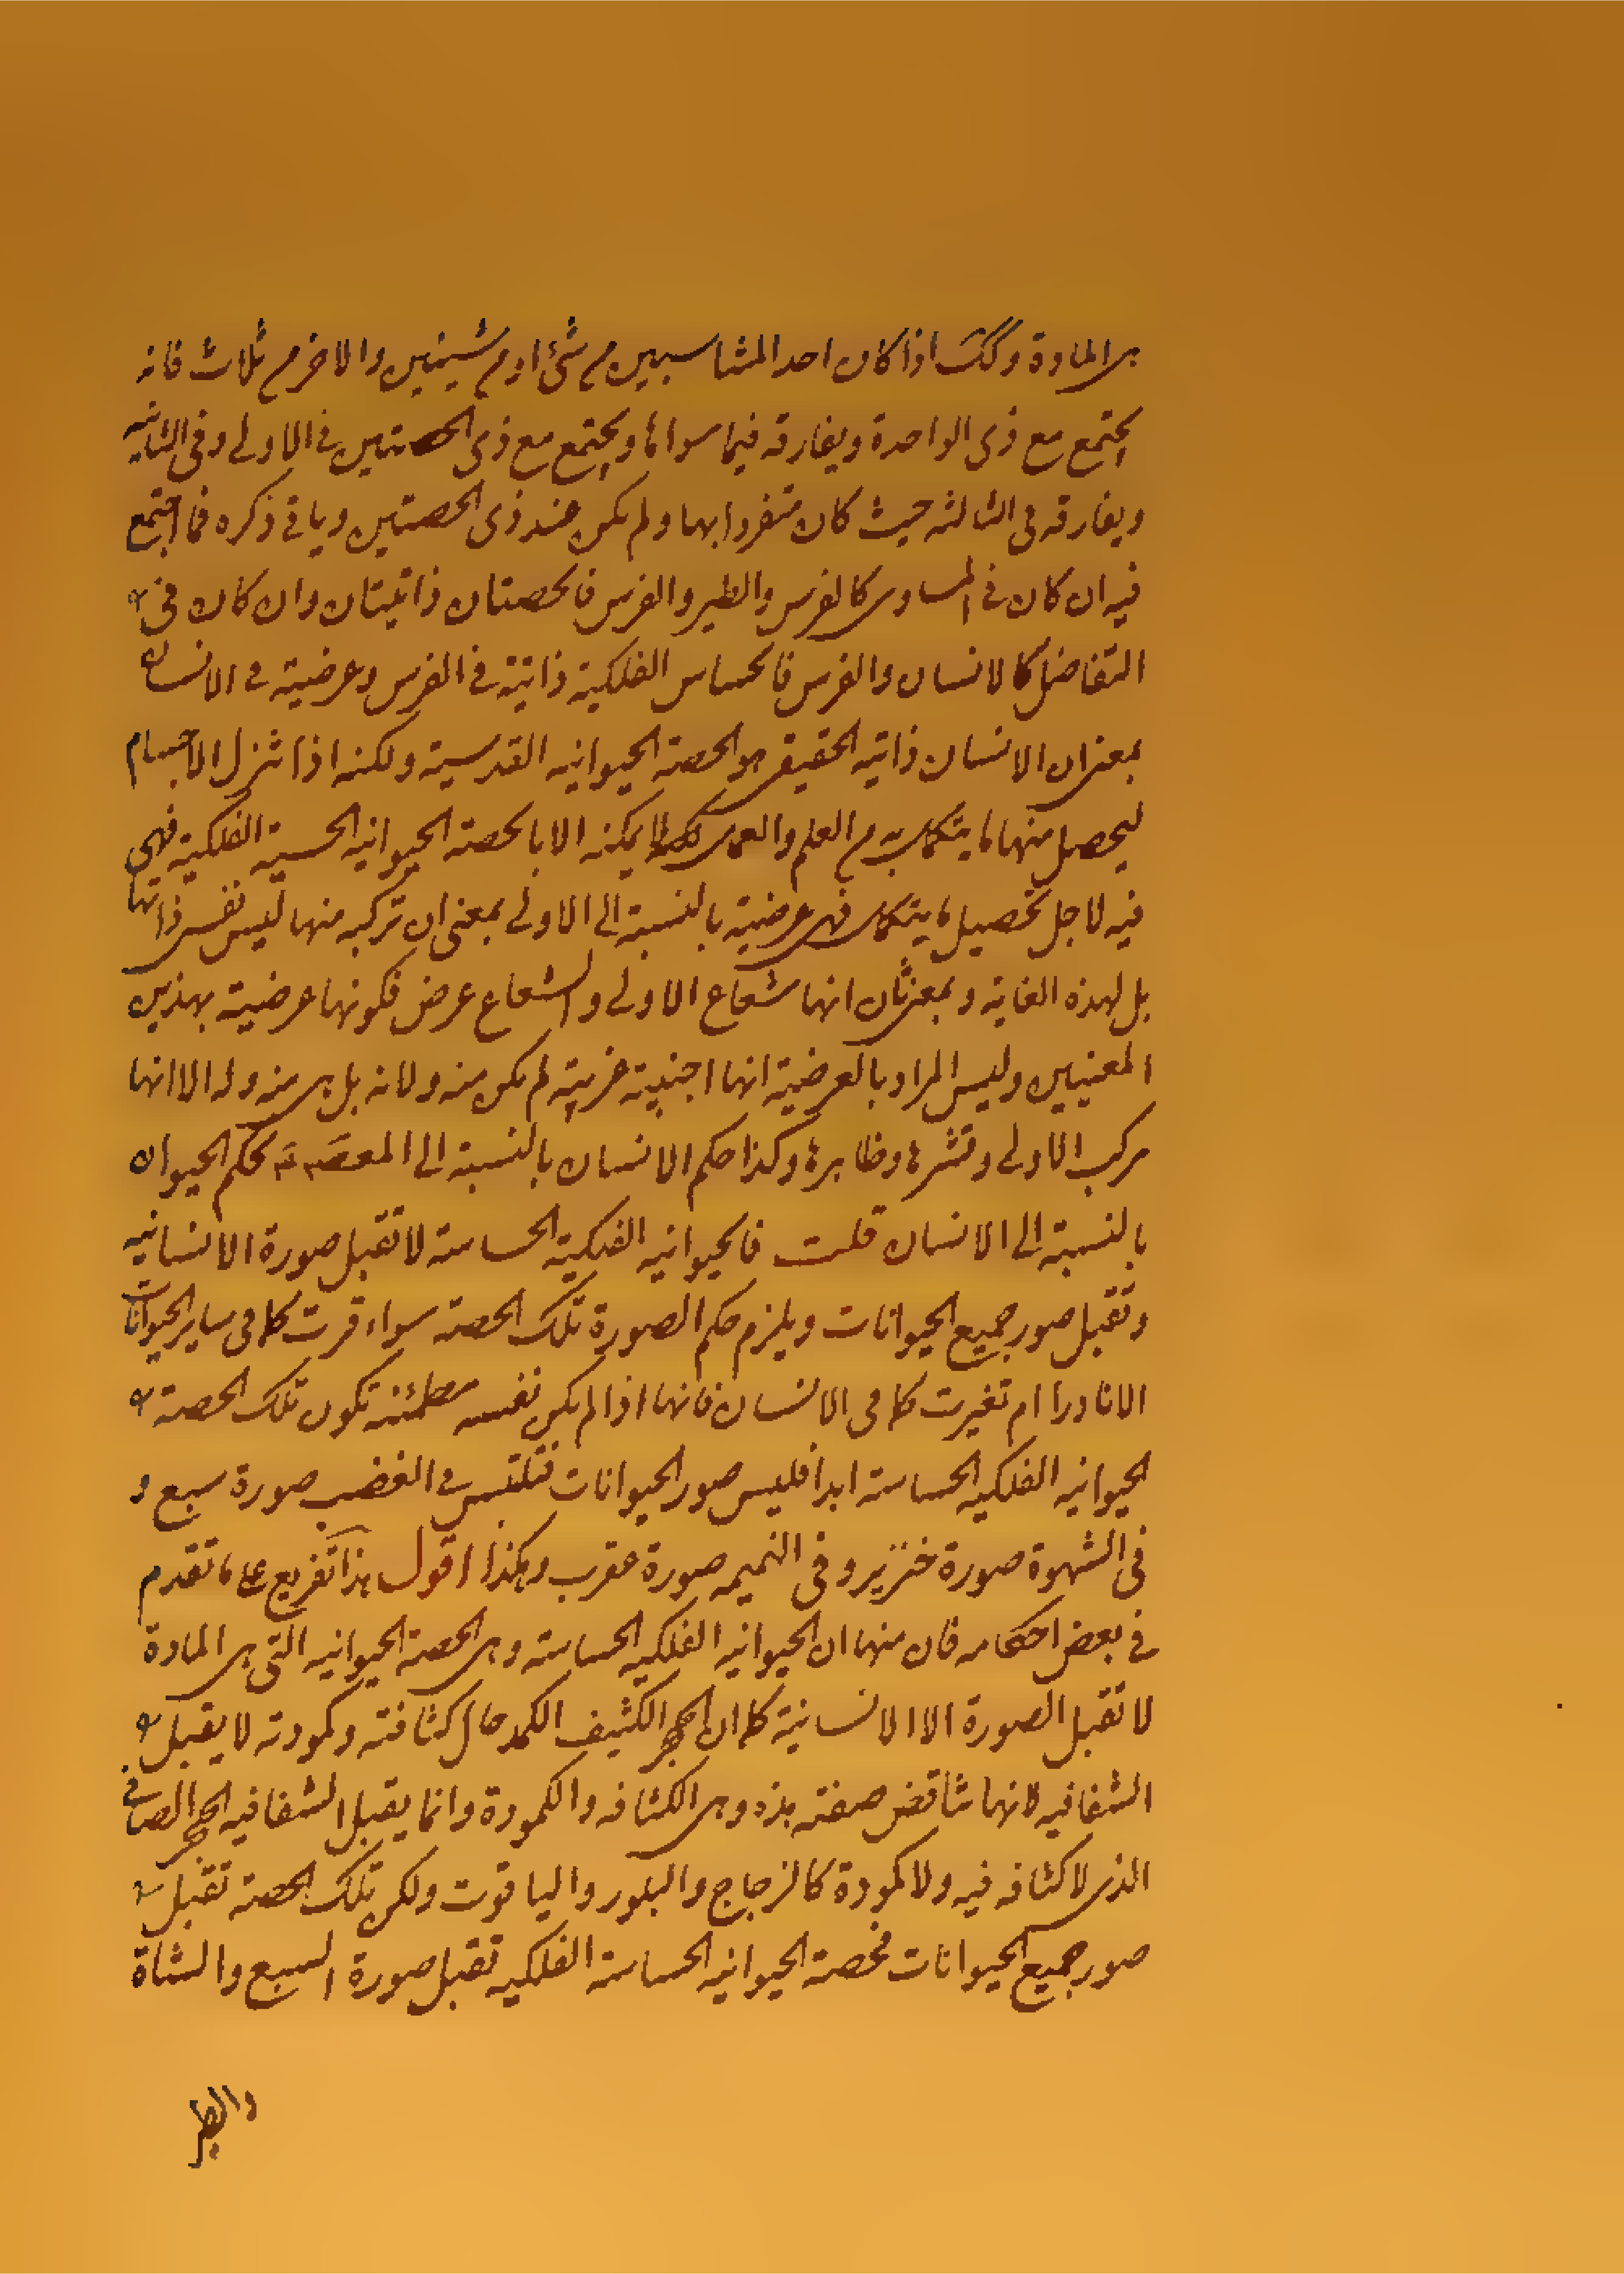 هى المادة وكك اذا كان احد المتناسبين من شئ او من شيئين والاخر من ثلاث فانه
يجتمع مع ذى الواحدة ويفارقه فيما سواها ويجتمع مع ذى الحصتين فى الاولى وفى الثانيه
ويفارقه فى الثالثه حيث كان متفردا بها ولم يكن عند ذى الحصتين وياتى ذكره فما اجتمع
فيه ان كان فى المساوى كالفرس والطير والفرس فالحصتان ذاتيتان وان كان فى
التفاضل كالانسان والفرس فالحساس الفلكية ذاتية فى الفرس وعرضية فى الانسان
بمعنى ان الانسان ذاتيه الحقيقى هو الحصة الحيوانيه القدسية ولكنه اذا تنزل الاجسام
ليحصل منها ما يتكمل به من العلم والعمل لا يمكنه الا بالحصة الحيوانيه الحسية الفلكية فهى
فيه لاجل تحصيل ما يتكمل فهى عرضية بالنسبة الى الاولى بمعنى ان تركبه منها ليس نفس ذاتها
بل لهذه الغاية وبمعنى ثان انها شعاع الاولى والشعاع عرض فكونها عرضية بهذين
المعنيين وليس المراد بالعرضية انها اجنبية غريبة لم يكن منه ولا له بل هى منه وله الا انها
مركب الاولى وقشرها وظاهرها وكذا حكم الانسان بالنسبة الى المعصوم ع كحكم الحيوان
بالنسبة الى الانسان قلت فالحيوانيه الفلكية الحساسة لا تقبل صورة الانسانيه
وتقبل صور جميع الحيوانات ويلزم حكم الصورة تلك الحصة سواء قرت كما فى ساير الحيوانات
الا نادرا ام تغيرت كما فى الانسان فانها اذا لم يكن نفسه مطمئنه تكون تلك الحصة
الحيوانيه الفلكيه الحساسة ابدا فليس صور الحيوانات فتلتبس فى الغضب صورة سبع و
فى الشهوة صورة خنزير وفى النميمه صورة عقرب وهكذا اقول هذا تفريع على ما تقدم
فى بعض احكامه فان منها ان الحيوانيه الفلكيه الحساسة وهى الحصة الحيوانيه التى هى المادة
لا تقبل الصورة الا الانسانية كما ان الحجر الكثيف الكمد حال كثافته وكمودته لا يقبل
الشفافيه لانها تناقض صفته هذه وهى الكثافه والكمودة وانما يقبل الشفافيه الحجر الصافى
الذى لا كثافه فيه ولا كمودة كالزجاج والبلور والياقوت ولكن تلك الحصة تقبل
صور جميع الحيوانات فحصة الحيوانيه الحساسة الفلكيه تقبل صورة السبع والشاة
والطير